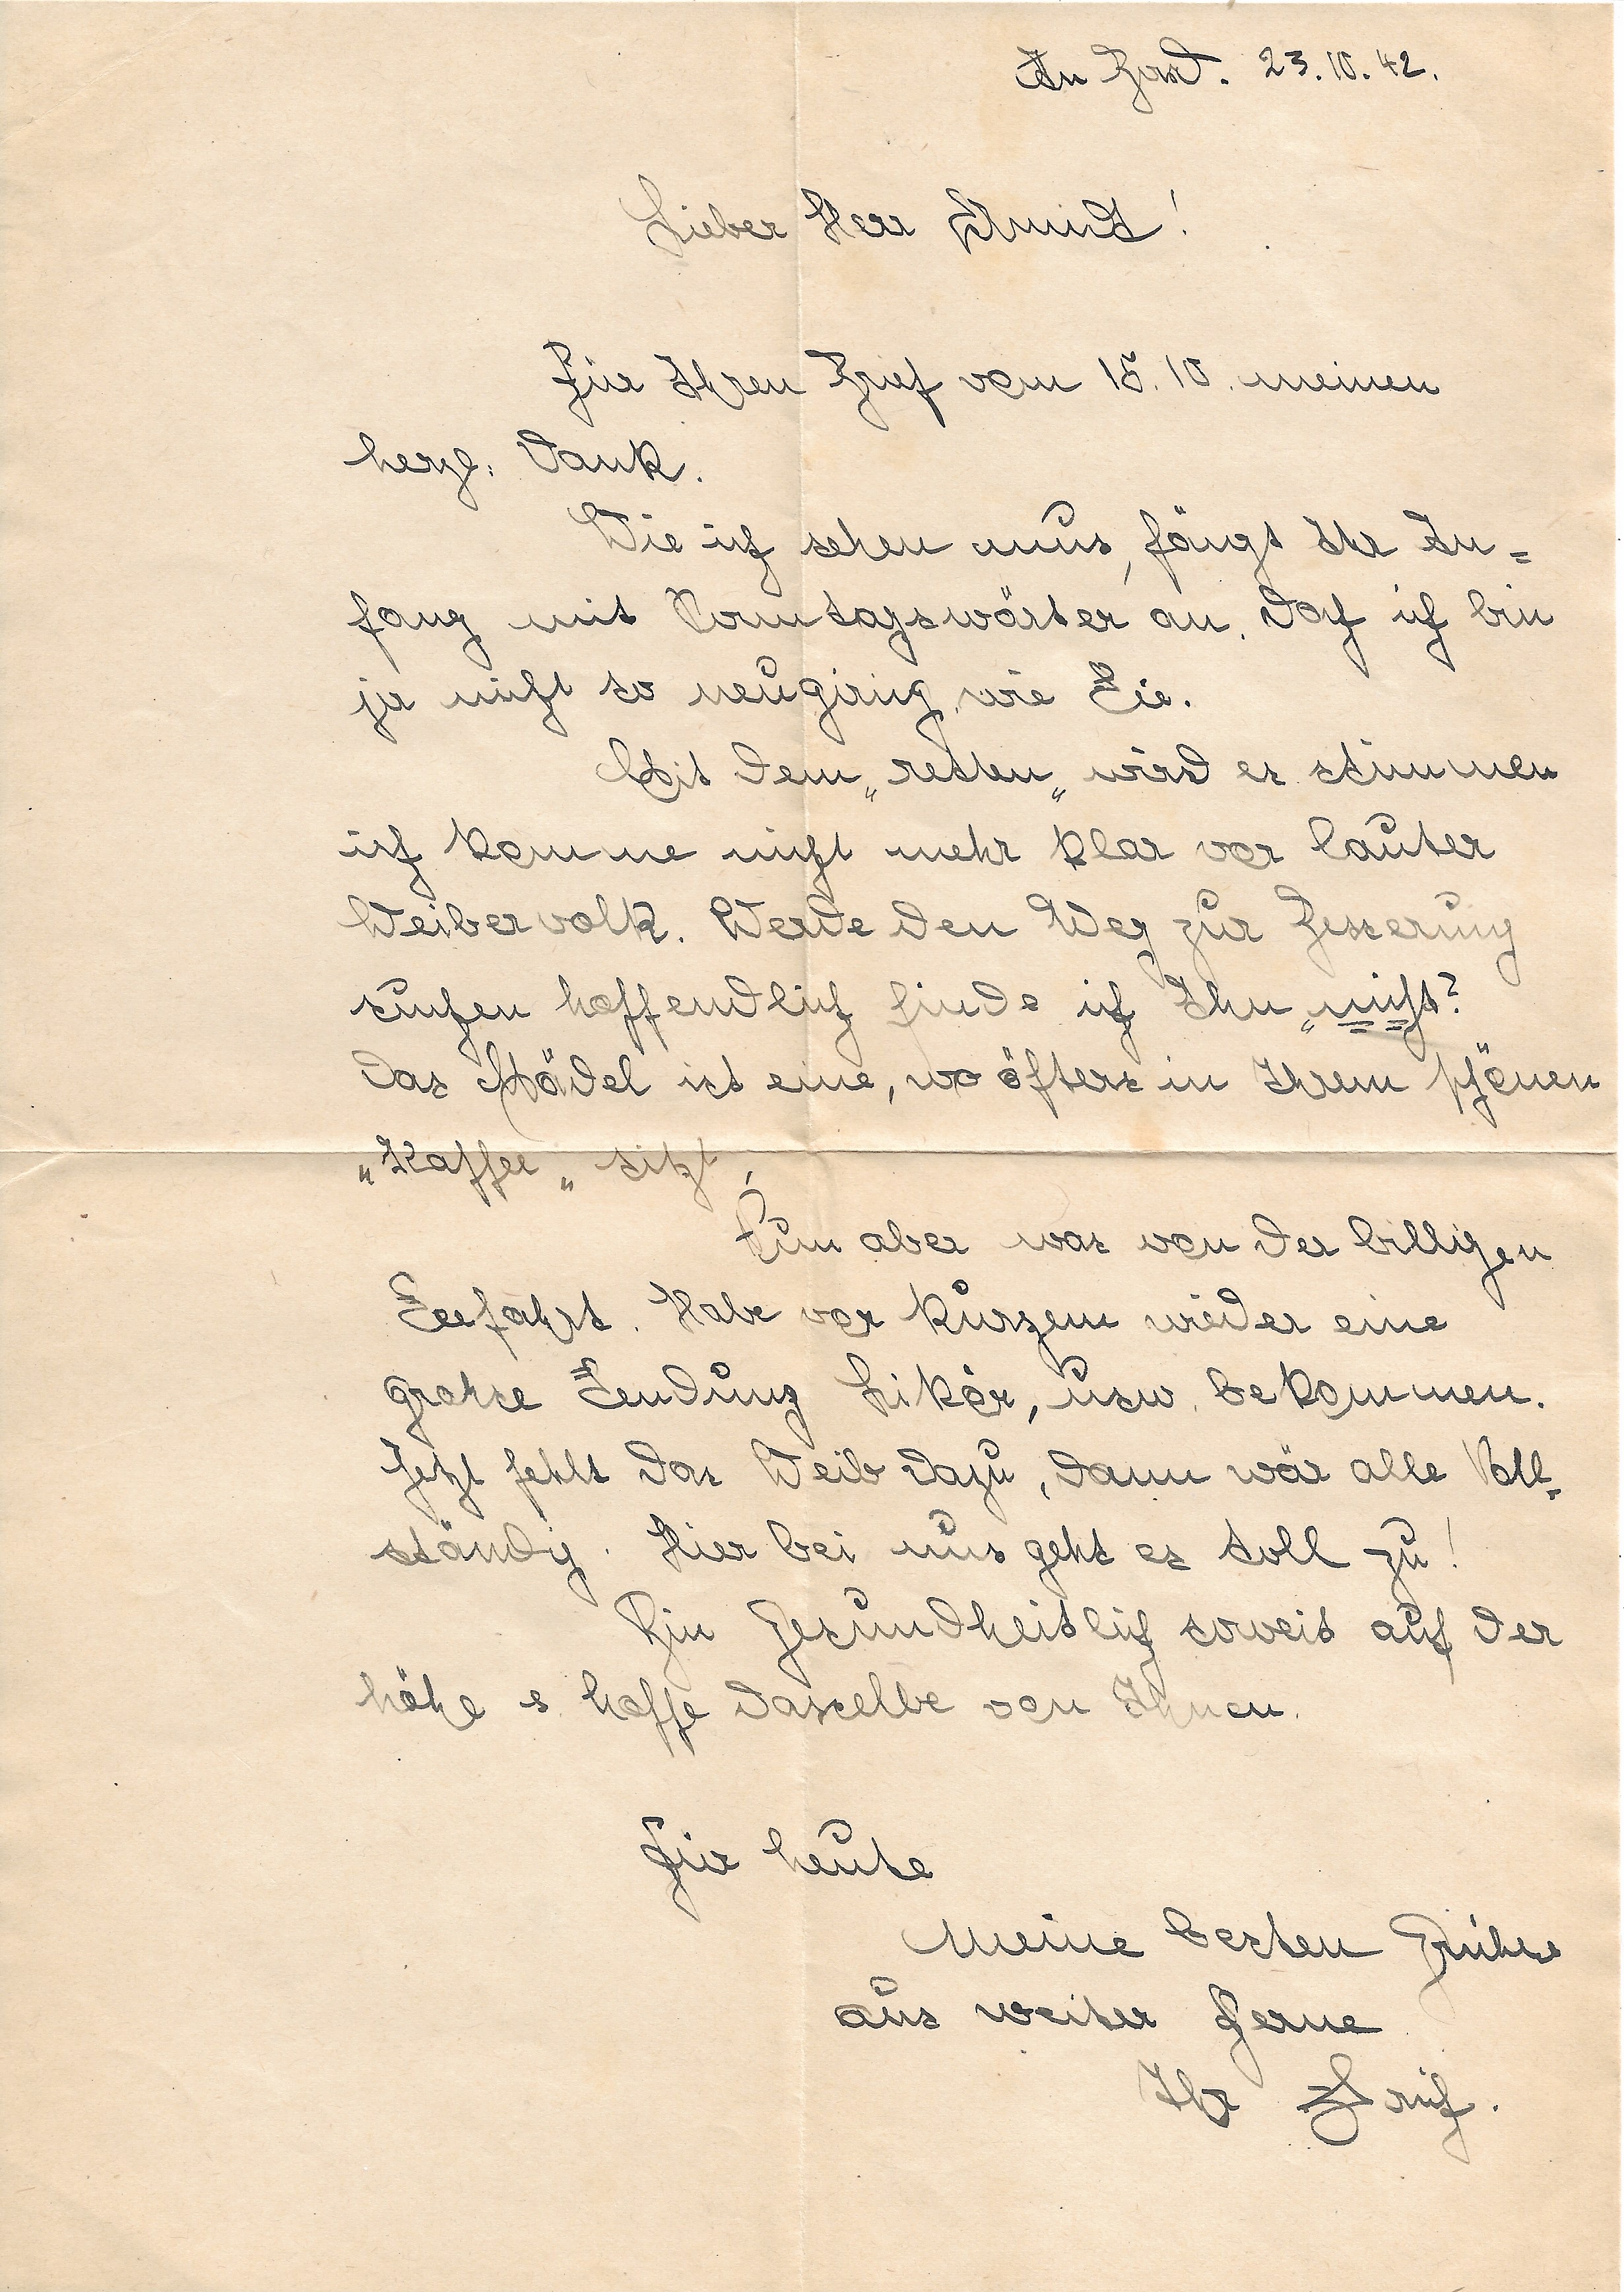 An Bord. 23.10.42.
Lieber Herr Schmid!
Für Ihren Brief vom 15.10. meinen
herzl. Dank.
Wie ich sehen mus, fängt Ihr An=
fang mit Sonntagswärter an. Doch ich bin
ja nicht so neugirig, wie Sie.
Mit dem „retten„ wird es stimmen
ich komme nicht mehr klar vor lauter
Weibervolk. Werde den Weg zur Besserung
suchen hoffendlich finde ich Ihn „nicht?
Das Mädel ist eine, wo öfters in Ihrem schönen
„Kaffee„ sitzt,
Nun aber was von der billigen
Seefahrt. Habe vor kurzem wieder eine
grohse Sendung Likör, usw. bekommen.
Jetzt fehlt das Weib dazu, dann wär alle Voll=
ständig. Hier bei uns geht es toll zu!
Bin Gesundheitlich soweit auf der
höhe & hoffe dasselbe von Ihnen.
Für heute
Meine besten Grühse
aus weiter Ferne
Ihr